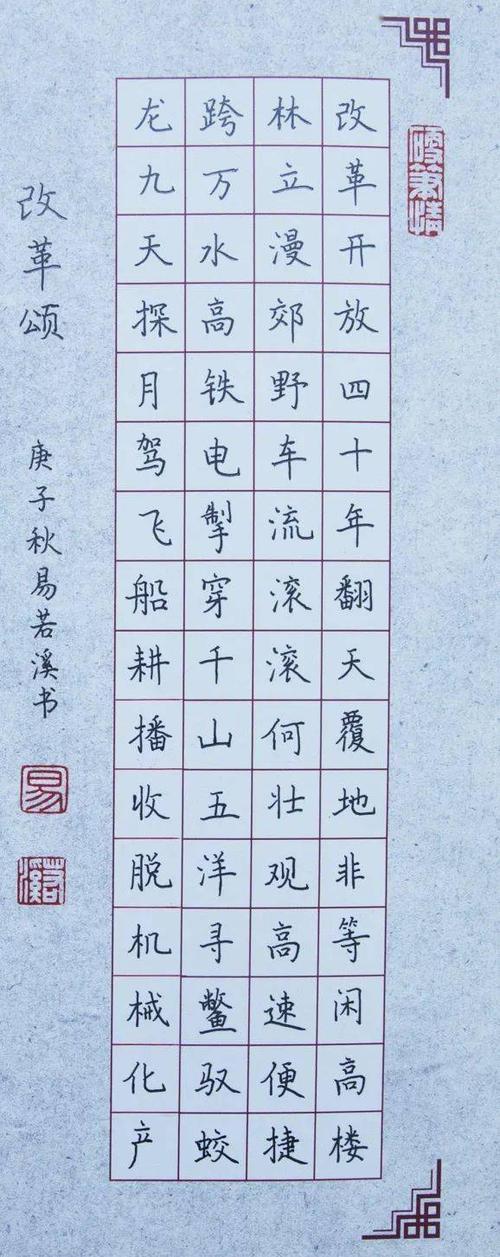 改革开放四十年翻天覆地非等闲高楼
林立漫郊野车流滚滚何壮观高速便捷
跨万水高铁电掣穿千山五洋寻鳖驭蛟
龙九天探月驾飞船耕播收脱机械化产
改革颂
庚子秋易若溪书
易
若溪